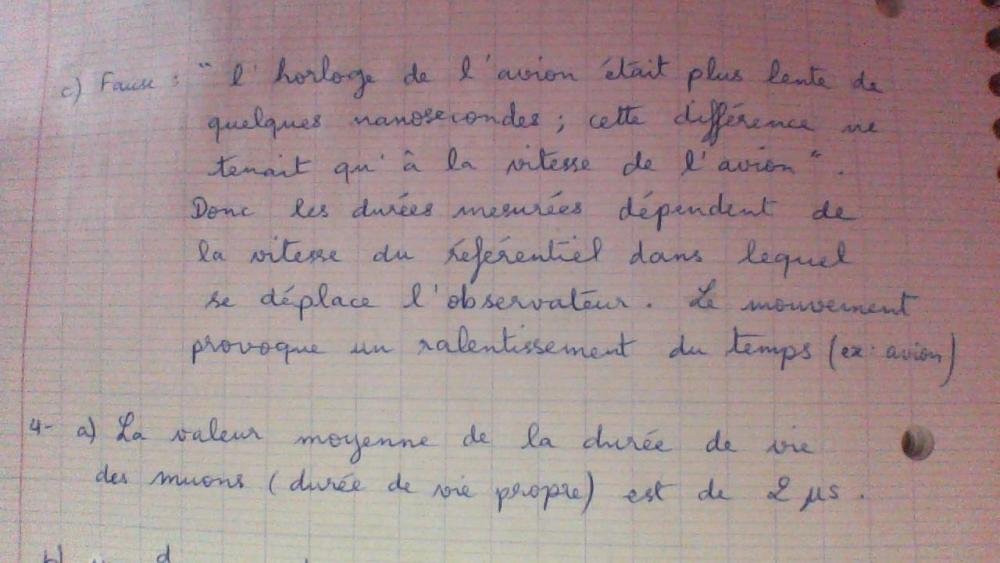 c) Fausse : " l'horloge de l'avion était plus lente de
quelques nanosecondes ; cette différence ne
tenait qu'à la vitesse de l'avion ".
Donc les durées mesurées dépendent de
la vitesse du référentiel dans lequel
se déplace l'observateur. Le mouvement
provoque un ralentissement du temps (ex: avion)
4- a) La valeur moyenne de la durée de vie
des muons (durée de vie propre) est de 2 µs.
b)